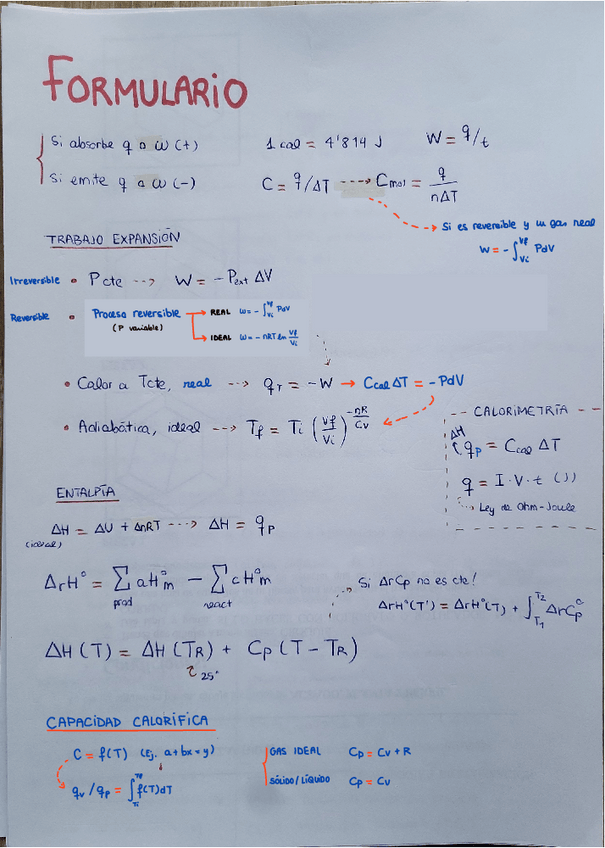 FORMULARIO
Si absorbe q o ω (+)
Si emite q o ω (-)
1 cal = 4'814 J
W = q/t
C = q/ΔT ----> Cmol = q/nΔT
Si es reversible y un gas real
W = -∫Vi^Vf PdV
TRABAJO EXPANSIÓN
Irreversible • P cte --> W = -Pext ΔV
Reversible • Proceso reversible
(P variable)
REAL ω = -∫Vi^Vf PdV
IDEAL ω = -nRT ln Vf/Vi
• Calor a Tcte, real --> qT = -W → Ccal ΔT = -PdV
• Adiabática, ideal --> Tf = Ti (Vf/Vi)^-nR/Cv
CALORIMETRÍA
ΔH
qp = Ccal ΔT
q = I·V·t (J)
Ley de Ohm-Joule
ENTALPÍA
ΔH = ΔU + ΔnRT ---> ΔH = qp
(ideal)
ΔrH° = ∑ aH°m - ∑ cH°m
prod react
Si ΔrCp no es cte!
ΔrH°(T') = ΔrH°(T) + ∫T1^T2 ΔrCp°
ΔH (T) = ΔH (TR) + Cp (T - TR)
25°
CAPACIDAD CALORÍFICA
C = f(T) (Ej. a+bx=y)
qv/qp = ∫Ti^Tf f(T)dT
GAS IDEAL Cp = Cv + R
SÓLIDO/LÍQUIDO Cp = Cv